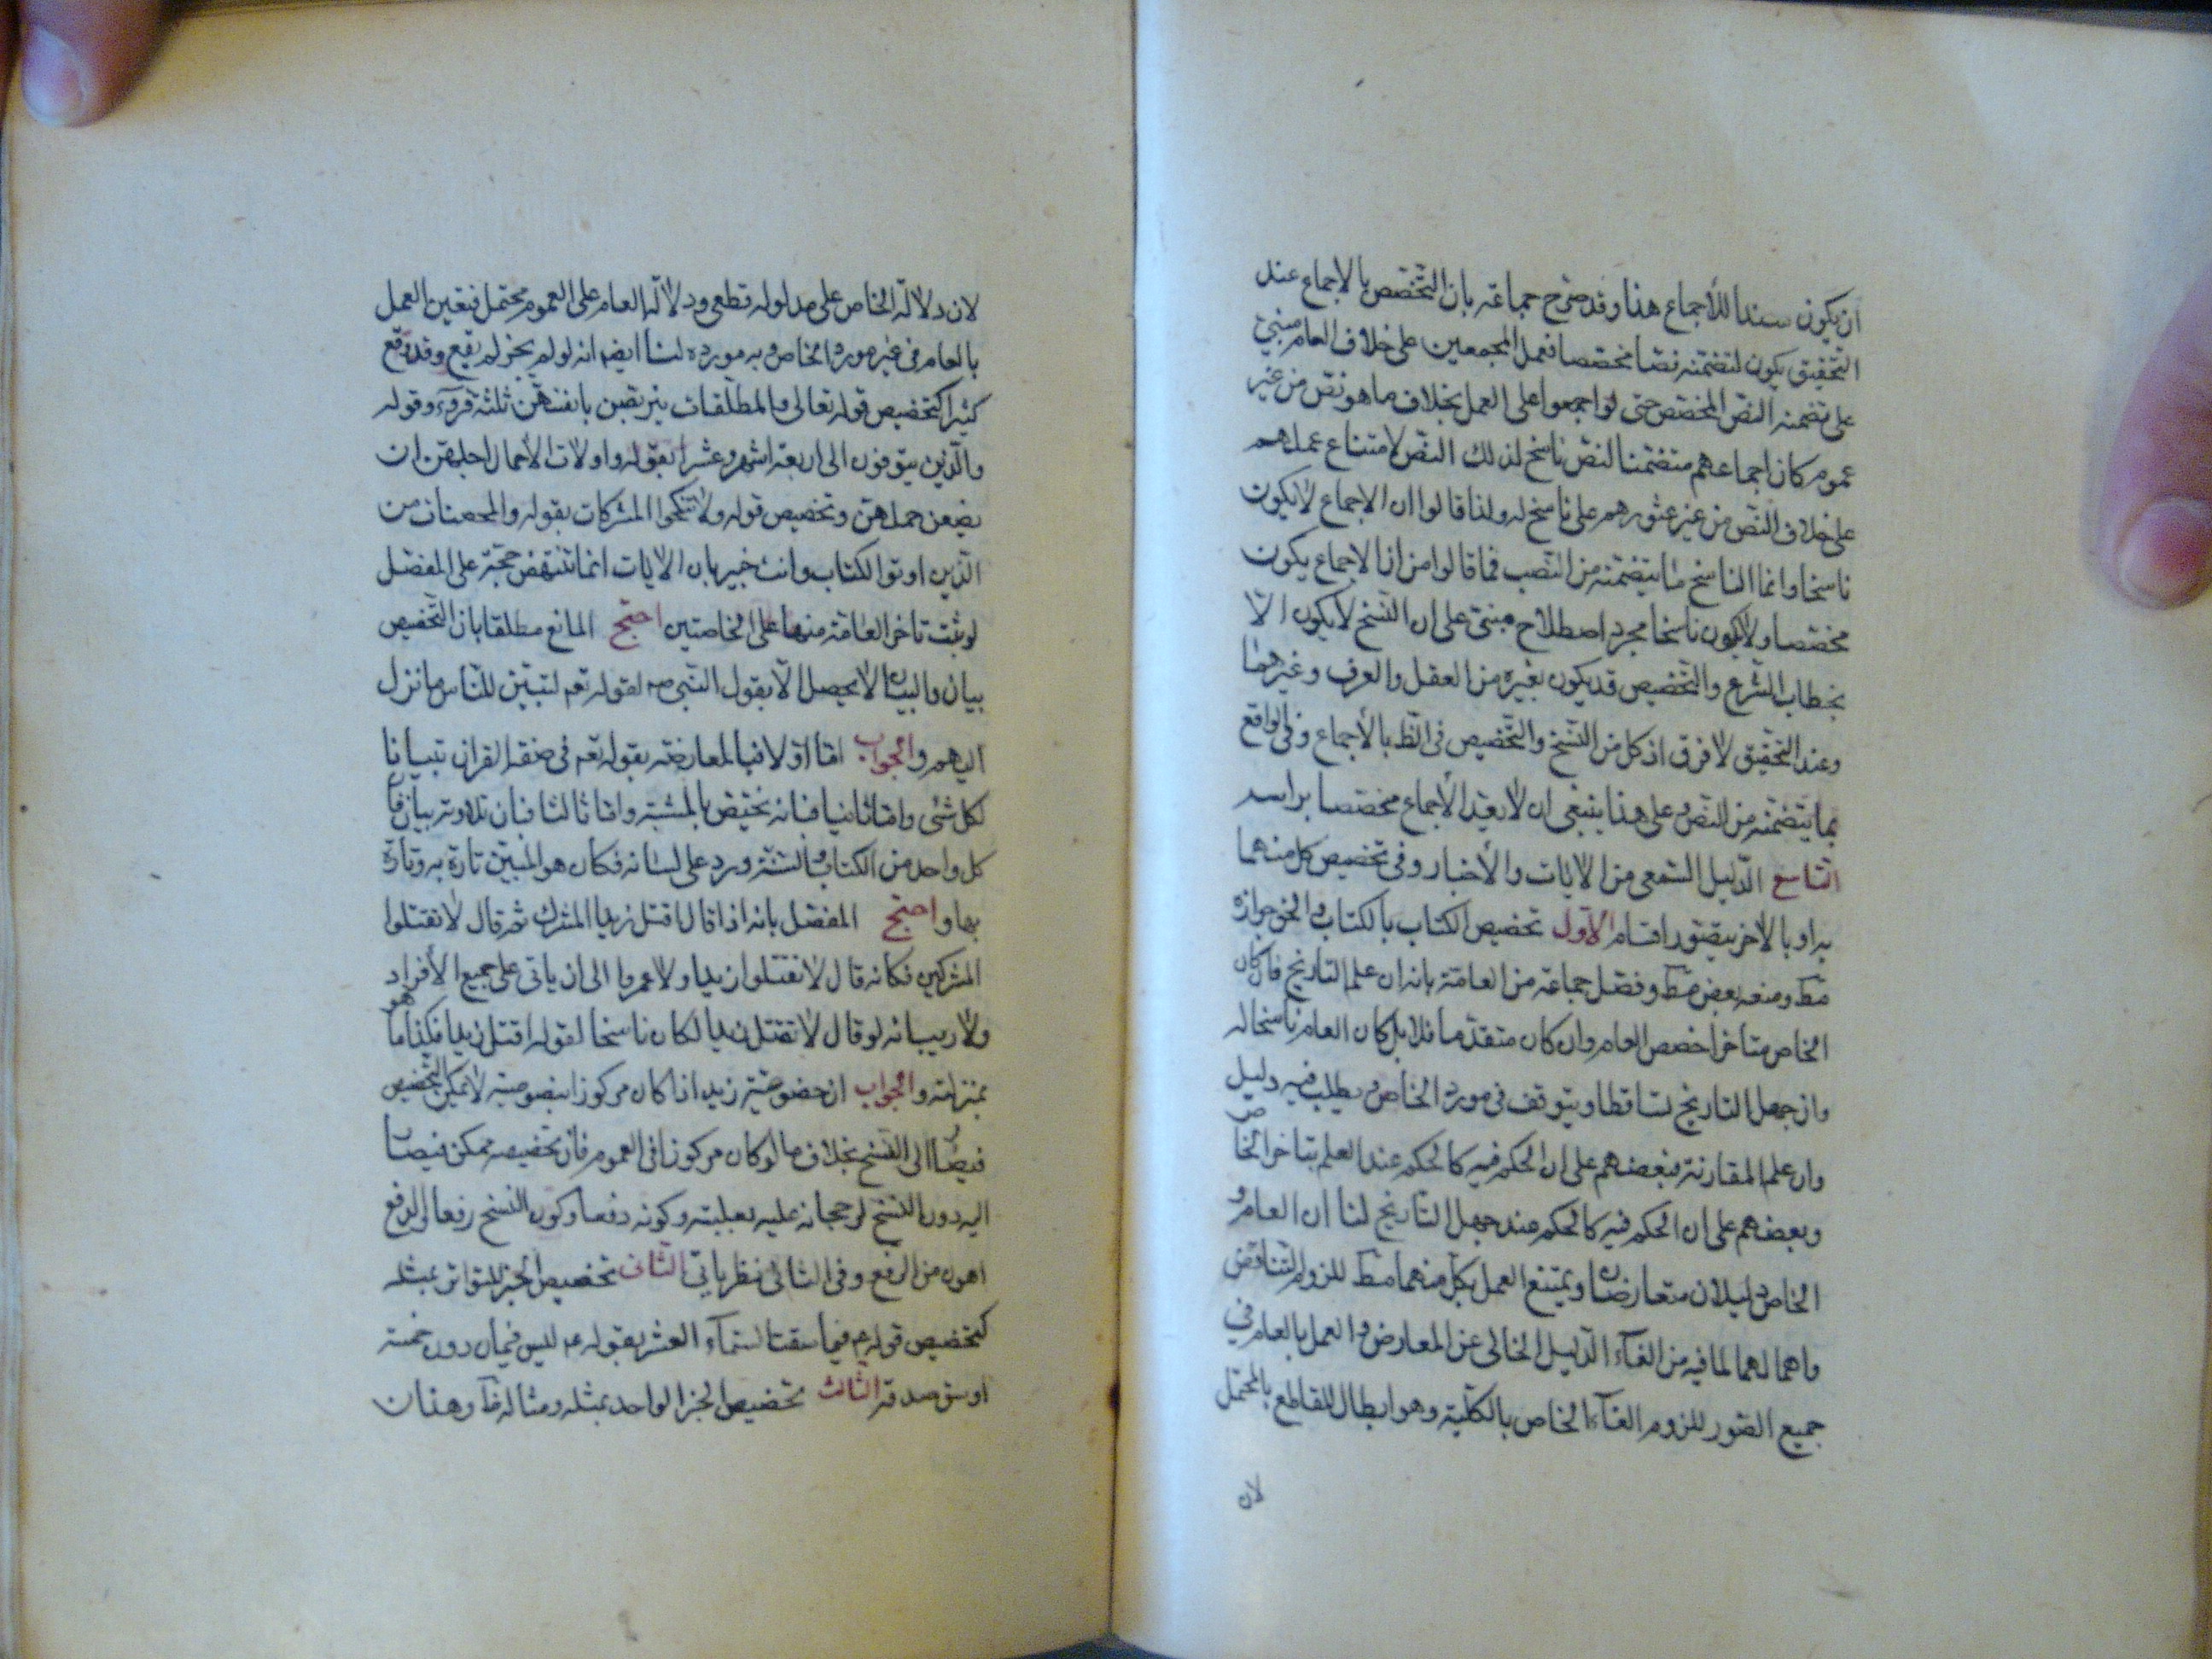 ان يكون سندا للأجماع هذا وقد صرّح جماعة بان التخصص بالاجماع عند
التحقيق يكون لتضمنه نصا مخصصا فعمل المجمعين على خلاف العام مبنيّ
على تضمنه النصّ المخصّص حتى لو اجمعوا على العمل بخلاف ما هو نصّ من غير
عموم كان اجماعهم متضمنا لنصّ ناسخ لذلك النصّ لامتناع عملهم
على خلاف النصّ من غير عثورهم على ناسخ له ولذا قالوا ان الاجماع لا يكون
ناسخا وانما الناسخ ما يتضمّنه من النصب فما قالوا من ان الاجماع يكون
مخصّصا ولا يكون ناسخا مجرد اصطلاح مبنىّ على ان النسخ لا يكون الّا
بخطاب الشّرع والتّخصيص قد يكون بغيره من العقل والعرف وغيرهما
وعند التحقيق لا فرق اذ كل من النّسخ والتّخصيص فى الظّ بالأجماع وفى الواقع
بما يتضمّنه من النّصّ وعلى هذا ينبغى ان لا يعدّ الأجماع مخصّصا براسه
التاسع الدّليل السّمعى من الايات والأخبار وفى تخصيص كل منهما
به او بالأخر يتصّور اقسام الأول تخصيص الكتاب بالكتاب والحق جوازه
مط ومنعه بعض مط وفصّل جماعة من العامّة بانه ان علم التاريخ فان كان
الخاص متاخرا خصص العام وان كان متقدّما فلا بل كان العام ناسخا له
وان جهل التاريخ تساقطا ويتوقف فى مورد الخاص ويطلب فيه دليل
وان علم المقارنة فبعضهم على ان الحكم فيه كالحكم عند العلم بتاخر الخاص
وبعضهم على ان الحكم فيه كالحكم عند جهل التاريخ لنا ان العام و
الخاص دليلان متعارضان ويمتنع العمل بكلّ منهما مط للزوم التّناقض
واهمالهما لما فيه من الغآء الدّليل الخالى عن المعارض والعمل بالعام في
جميع الصّور للزوم الغآء الخاص بالكلّية وهو ابطال للقاطع بالمحتمل
لان
لان دلالة الخاص على مدلوله قطعى ودلالة العام على العموم محتمل فتعين العمل
بالعام فى غير مورد الخاص وبه مورده لنا ايضا انه لو لم يجز لم يقع وقد وقع
كثيرا كتخصيص قوله تعالى والمطلّقات يتربّصن بانفسهنّ ثلثة قروء وقوله
والّذين يتوفون الى اربعة اشهر وعشرا بقوله واولات الأحمال اجلهنّ ان
يضعن حملهنّ وتخصيص قوله ولا تنكحوا المشركات بقوله والمحصنات من
الّذين اوتوا الكتاب وانت خبير بان الايات انما تنتهض حجّة على المفصّل
لو ثبت تاخر العامّة منها على الخاصتين احتج المانع مطلقا بان التّخصيص
بيان والبيان لا يحصل الّا بقول النّبى ص لقوله تعم لتبيّن للنّاس ما نزل
اليهم والجواب امّا اوّلا فبالمعارضة بقوله تعم فى صفة القران تبيانا
لكل شئ وامّا ثانيا فبانه تختصّ بالمشتبه وامّا ثالثا فبان تلاوته بيان فان
كل واحد من الكتاب والسّنّة ورد على لسانه فكان هو المبيّن تارة به وتارة
بها واحتج المفصّل بانه اذا قال اقتل زيدا المشرك ثم قال لا تقتلوا
المشركين فكانه قال لا تقتلوا زيدا ولا عمروا الى ان ياتى على جميع الأفراد
ولا ريب انه لو قال لا تقتل زيدا لكان ناسخا لقوله اقتل زيدا فكذا ما هو
بمنزلته والجواب ان خصوصيّة زيد اذا كان مركوزا بخصوصيته لا يمكن التّخصيص
فيصار الى النّسخ بخلاف ما لو كان مركوزا فى العموم فان تخصيصه ممكن فيصار
اليه دون النّسخ لرجحانه عليه بغلبته وكونه دفعا وكون النّسخ رفعا والدفع
اهون من الرفع وفى الثانى نظر ياتى الثانى تخصيص الخبر المتواتر بمثله
كتخصيص قوله ع فيما سقت السّمآء العشر بقوله ع ليس فيما دون خمسة
اوسق صدقة الثالث تخصيص الخبر الواحد بمثله ومثاله ظآ وهذان